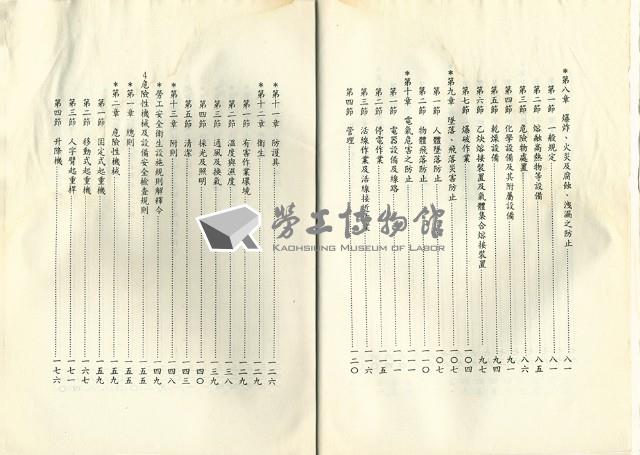 *第八章 爆炸、火災及腐蝕、洩漏之防止 八一
第一節 一般規定 八一
第二節 熔融高熱物等設備 八五
第三節 危險物處置 八六
第四節 化學設備及其附屬設備 九一
第五節 乾燥設備 九四
第六節 乙炔熔接裝置及氣體集合熔接裝置 九七
第七節 爆破作業 一〇四
*第九章 墜落、飛落災害防止 一〇七
第一節 人體墜落防止 一〇七
第二節 物體飛落防止 一一〇
*第十章 電氣危害之防止 一一一
第一節 電器設備及線路 一一一
第二節 停電作業 一一五
第三節 活線作業及活線接近作業 一一六
第四節 管理 一二〇
*第十一章 防護具 一二六
*第十二章 衛生 一二九
第一節 有害作業環境 一二九
第二節 溫度與濕度 一三八
第三節 通風及換氣 一三九
第四節 採光及照明 一四〇
第五節 清潔 一四三
*第十三章 附則 一四八
*勞工安全衛生設施規則解釋令 一四九
4危險性機械及設備安全檢查規則 一五五
*第一章 總則 一五五
*第二章 危險性機械 一五九
第一節 固定式起重機 一五九
第二節 移動式起重機 一六七
第三節 人字臂起重桿 一七一
第四節 升降機 一七六
勞工博物館
KAOHSIUNG MUSEUM OF LABOR